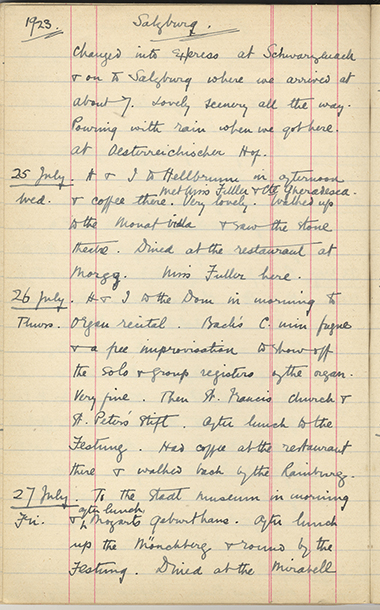 1923. Salzburg.
changed into Express at Schwarzach
& on to Salzburg where we arrived at
about 7. Lovely scenery all the way.
Pouring with rain when we got here.
at Oesterreichischer Hof.
25 July. H & I to Hellbrunn in afternoon
Met Miss Fuller & Gherardesca.
Wed. & coffee there. Very lovely. Walked up
to the Monat & saw the stone
theatre. Dined at the restaurant at
Morzg. Miss Fuller here.
26 July. H & I to the Dom in morning to
Thurs. Organ recital. Bach's C. min fugue
& a free improvisation to show off
the solo & group registers of the organ.
Very fine. Then St. Francis church &
St. Peter's Stift. After lunch to the
Festung. Had coffee at the restaurant
there & walked back by the Rainburg.
27 July. To the Stadt Museum in morning
after lunch
Fri. & to Mozarts geburthaus. After lunch
up the Mönchberg & round by the
Festung. Dined at the Mirabell